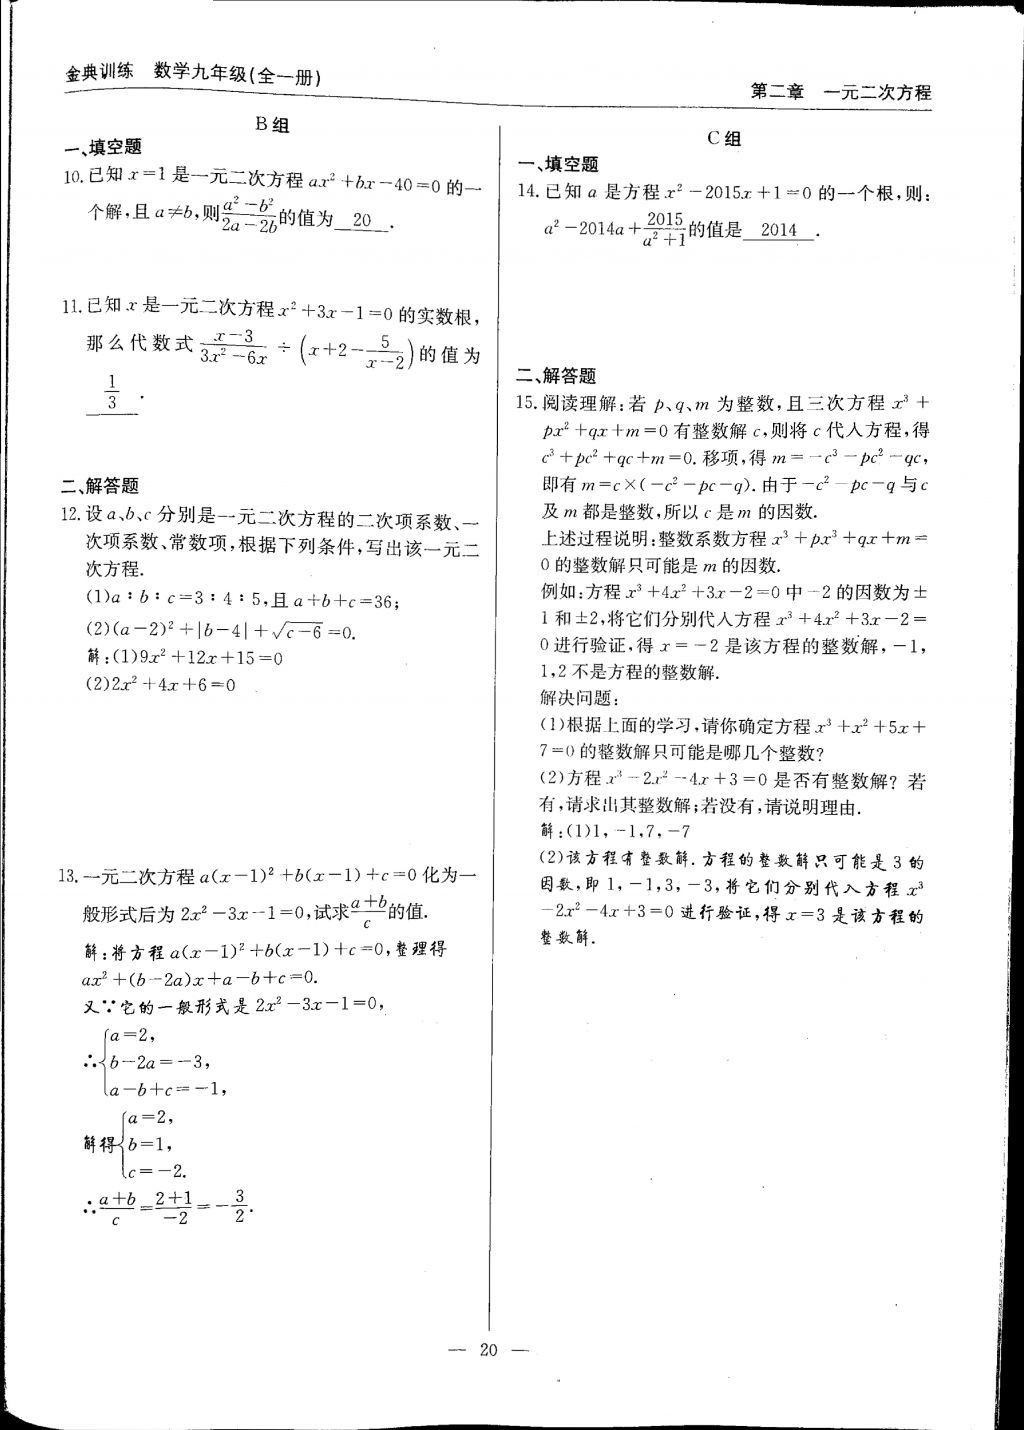 金典训练　数学九年级(全一册)
第二章　一元二次方程
B组
一、填空题
10.已知x=1是一元二次方程ax²+bx-40=0的一
个解,且a≠b,则(a²-b²)/(2a-2b)的值为 20 .
11.已知x是一元二次方程x²+3x-1=0的实数根,
那么代数式(x-3)/(3x²-6x)÷(x+2-5/(x-2))的值为
1/3 .
二、解答题
12.设a、b、c分别是一元二次方程的二次项系数、一
次项系数、常数项,根据下列条件,写出该一元二
次方程.
(1)a∶b∶c=3∶4∶5,且a+b+c=36;
(2)(a-2)²+|b-4|+√(c-6)=0.
解:(1)9x²+12x+15=0
(2)2x²+4x+6=0
13.一元二次方程a(x-1)²+b(x-1)+c=0化为一
般形式后为2x²-3x-1=0,试求(a+b)/c的值.
解:将方程a(x-1)²+b(x-1)+c=0,整理得
ax²+(b-2a)x+a-b+c=0.
又∵它的一般形式是2x²-3x-1=0,
∴{a=2,
b-2a=-3,
a-b+c=-1,
解得{a=2,
b=1,
c=-2.
∴(a+b)/c=(2+1)/(-2)=-3/2.
C组
一、填空题
14.已知a是方程x²-2015x+1=0的一个根,则:
a²-2014a+2015/(a²+1)的值是 2014 .
二、解答题
15.阅读理解:若p、q、m为整数,且三次方程x³+
px²+qx+m=0有整数解c,则将c代入方程,得
c³+pc²+qc+m=0.移项,得m=-c³-pc²-qc,
即有m=c×(-c²-pc-q).由于-c²-pc-q与c
及m都是整数,所以c是m的因数.
上述过程说明:整数系数方程x³+px³+qx+m=
0的整数解只可能是m的因数.
例如:方程x³+4x²+3x-2=0中-2的因数为±
1和±2,将它们分别代入方程x³+4x²+3x-2=
0进行验证,得x=-2是该方程的整数解,-1,
1,2不是方程的整数解.
解决问题:
(1)根据上面的学习,请你确定方程x³+x²+5x+
7=0的整数解只可能是哪几个整数?
(2)方程x³-2x²-4x+3=0是否有整数解?若
有,请求出其整数解;若没有,请说明理由.
解:(1)1,-1,7,-7
(2)该方程有整数解.方程的整数解只可能是3的
因数,即1,-1,3,-3,将它们分别代入方程x³
-2x²-4x+3=0进行验证,得x=3是该方程的
整数解.
— 20 —